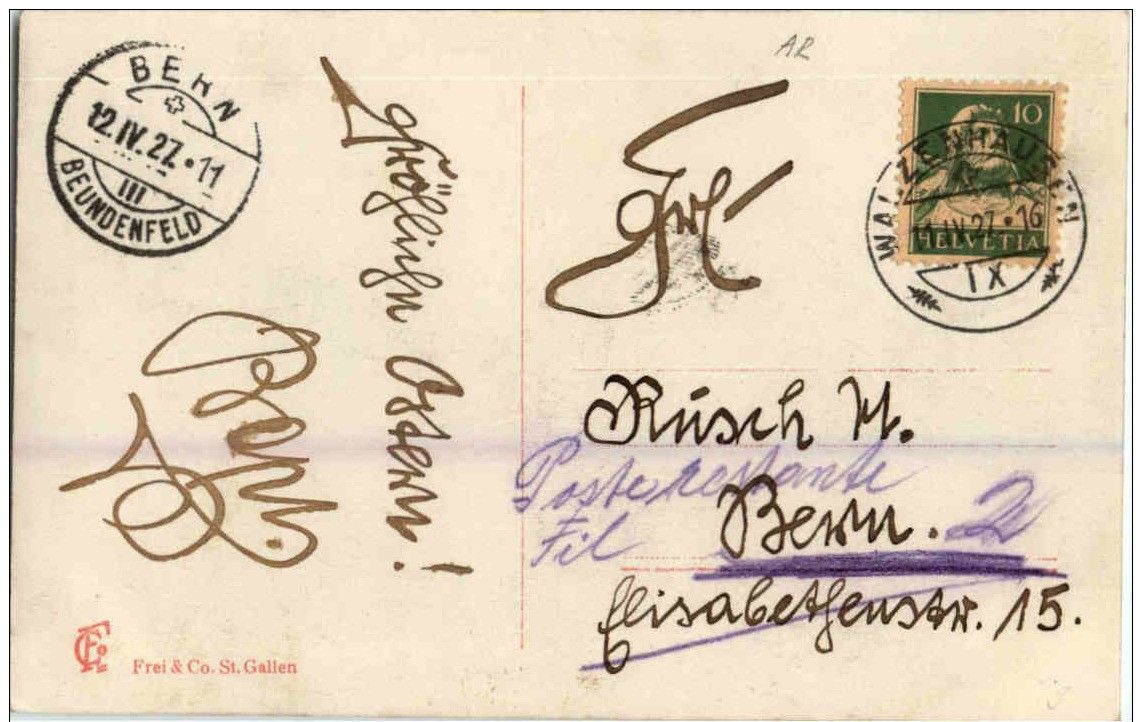 BERN
12.IV.27.11
III
BEUNDENFELD
Fröhliche Ostern!
AR
10
HELVETIA
WALZENHAUSEN
11.IV.27.16
IX
Frl.
Rüsch H.
Poste restante
Fil
Bern. 2
Elisabethenstr. 15.
Frei & Co. St. Gallen